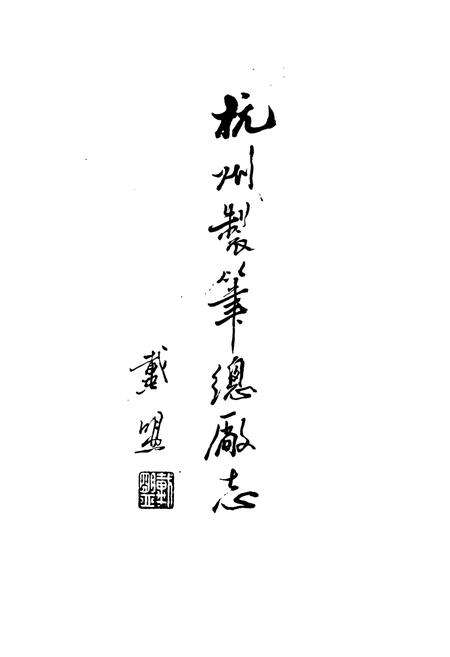 杭州製筆總廠志
戴盟
戴盟